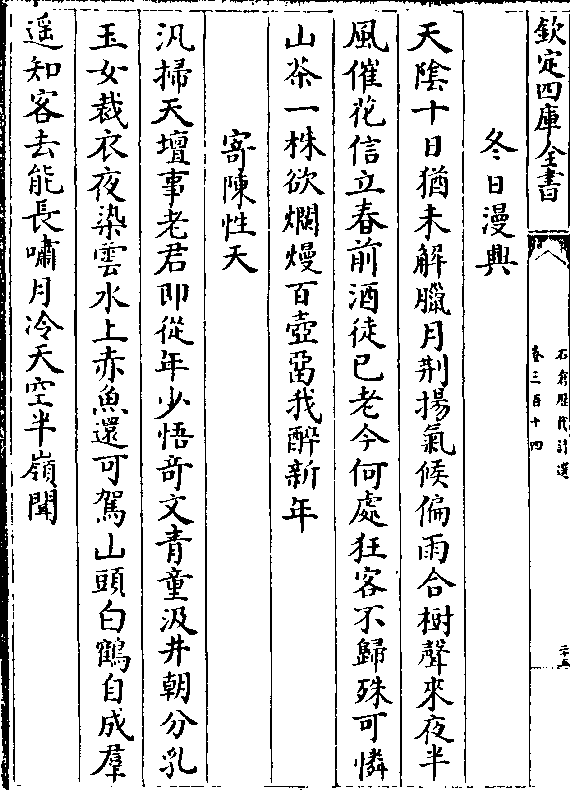 欽定四庫全書
石倉歷代詩選
卷三百十四
二十五
冬日漫興
天陰十日猶未解臘月荆揚氣候偏雨合樹聲來夜半
風催花信立春前酒徒已老今何處狂客不歸殊可憐
山茶一株欲爛熳百壺畱我醉新年
寄陳性天
汎掃天壇事老君即從年少悟竒文青童汲井朝分乳
玉女裁衣夜染雲水上赤魚還可駕山頭白鶴自成羣
遥知客去能長嘯月冷天空半嶺聞